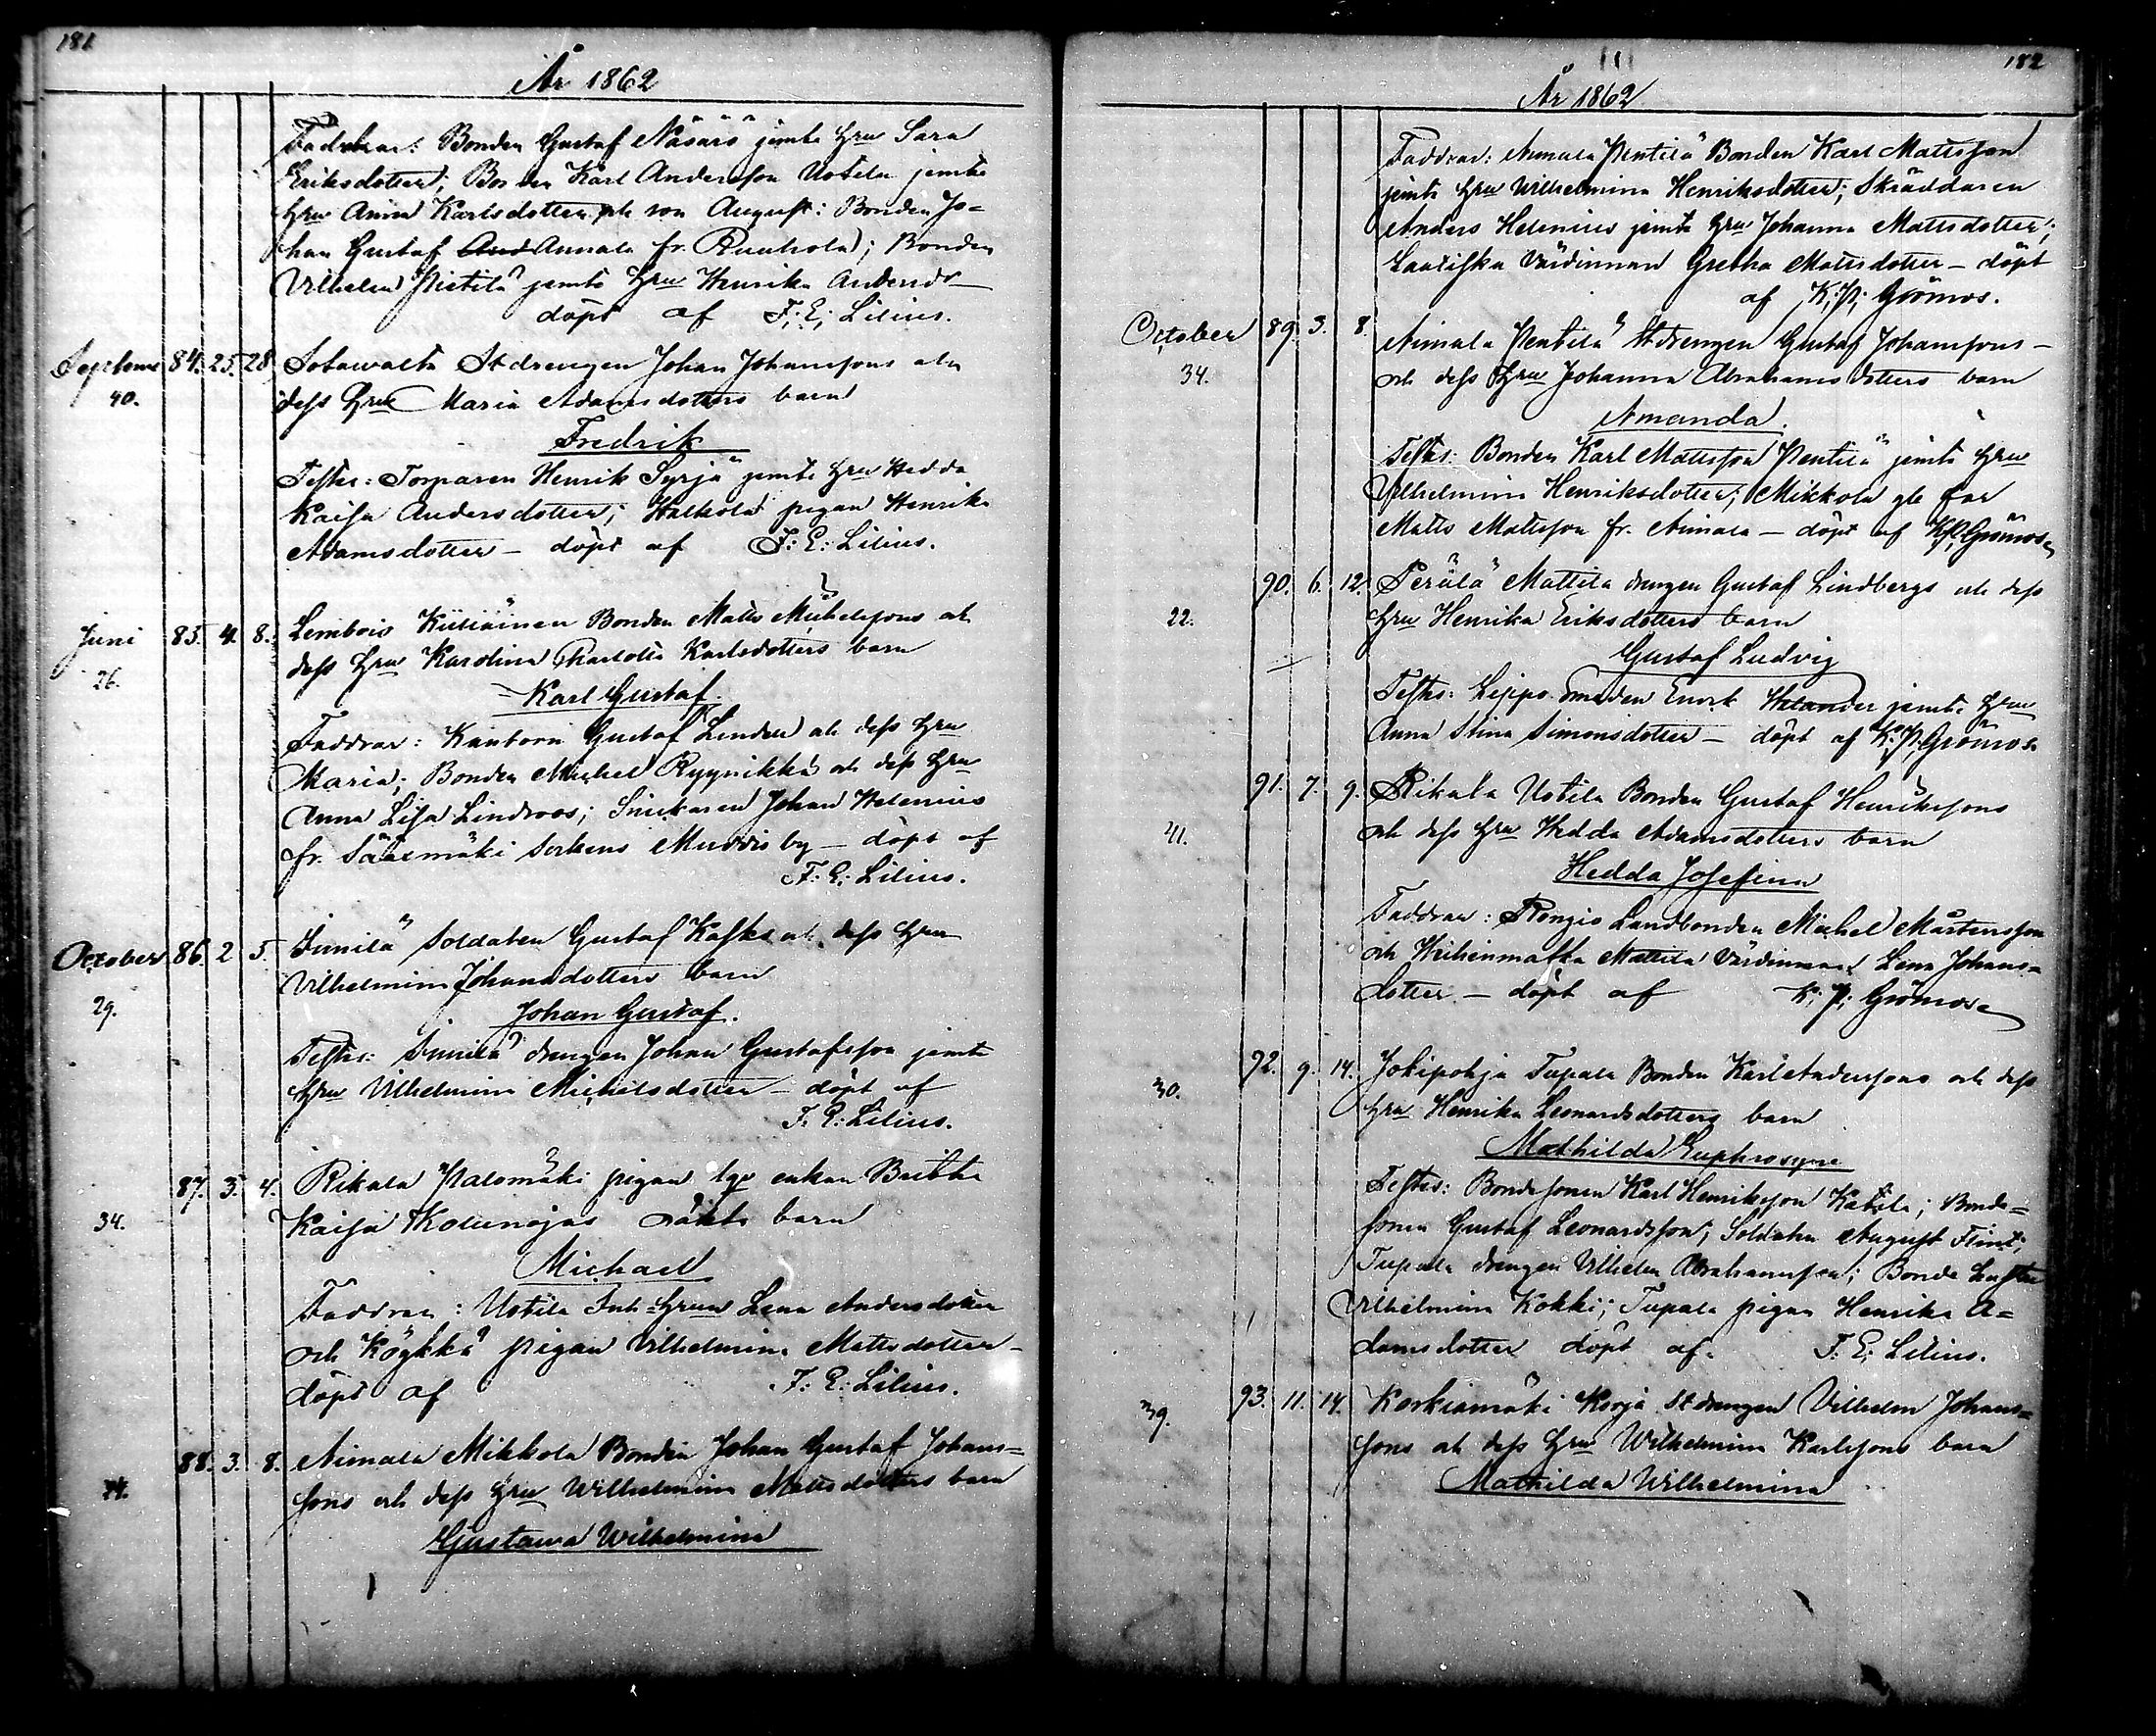 181
År 1862
Faddrar: Bonden Gustaf Näsärö jemte hru Sara
Eriksdotter; Bonden Karl Andersson Ustila jemte
hru Anna Karlsdotter och son August: Bonden Jo=
han Gustaf And Annala fr. Ruuhola); Bonden
Vilhelm Pietilä jemte hru Henrika Andersdr
döpt af F: E: Lilius.
Septemb 84. 25. 28. Sotavalta Stdrengen Johan Johanssons och
40. dess hru Maria Adamsdotters barn
Fredrik
Testes: Torparen Henrik Syrjä jemte hru Hedda
Kaisa Andersdotter; Halkola pigan Henrika
Adamsdotter – döpt af F: E: Lilius.
Juni 85. 4. 8. Lembois Kiiliäinen Bonden Matts Michelssons och
26. dess hru Karolina Charlotta Karlsdotters barn
Karl Gustaf.
Faddrar: Kantorn Gustaf Linden och dess hru
Maria; Bonden Michel Ryynikkä och dess hru
Anna Lisa Lindroos; Snickaren Johan Helenius
fr. Sääxmäki Sockens by – döpt af
F: E: Lilius.
October 86. 2. 5. Junilä Soldaten Gustaf Kask och dess hru
29. Vilhelmina Johansdotters barn
Johan Gustaf.
Testes: Junilä drengen Johan Gustafsson jemte
hru Vilhelmina Michelsdotter – döpt af
F: E: Lilius.
87. 3. 4. Rikala Palomäki pigan enkan Britha
34. Kaisa oäkta barn
Michael
Faddrar: Ustila Inh hrun Lena Andersdotter
och Köykkä pigan Vilhelmina Mattsdotter –
döpt af F: E: Lilius.
88. 3. 8. Aimala Mikkola Bonden Johan Gustaf Johans=
sons och dess hru Wilhelmina Mattsdotters barn
Gustava Wilhelmina
182
År 1862
Faddrar: Aimala Pentilä Bonden Karl Mattsson
jemte hru Wilhelmina Henriksdotter; Skräddaren
Anders Helenius jemte hru Johanna Mattsdotter;
Värdinnan Gretha Mattsdotter – döpt
af K: P: Grönroos.
October 89. 3. 8. Aimala Pentilä Stdrengen Gustaf Johanssons –
34. och dess hru Johanna Abrahamsdotters barn
Amanda.
Testes: Bonden Karl Mattsson Pentilä jemte hru
Vilhelmina Henriksdotter; Mikkola gl. far
Matts Mattsson fr. Aimala – döpt af K: P: Grönroos
90. 6. 12. Perälä Mattila drengen Gustaf Lindbergs och dess
22. hru Henrika Eriksdotters barn
Gustaf Ludvig
Testes: Lippo Smeden Enok Helander jemte hru
Anna Stina Simonsdotter – döpt af K: P: Grönroos
91. 7. 9. Rikala Ustila Bonden Gustaf Henrikssons
41. och dess hru Hedda Adamsdotters barn
Hedda Josefina
Faddrar: Rengio Landbonden Michel Mårtensson
och Mattila Värdinnan Lena Johans=
dotter – döpt af K: P: Grönroos
92. 9. 14. Jokipohja Tupala Bonden Karl Anderssons och dess
30. hru Henrika Leonardsdotters barn
Mathilda Euphrosyne
Testes: Bondesonen Karl Henriksson Katila; Bonde=
sonen Gustaf Leonardsson; Soldaten August Flint;
Tupala drengen Vilhelm Abrahamsson; Bonde hustrun
Vilhelmina Kokki; Tupala pigan Henrika A=
damsdotter döpt af F: E: Lilius.
93. 11. 14. Korkiamäki Korja Stdrengen Vilhelm Johans=
39. sons och dess hru Wilhelmina Karlssons barn
Mathilda Wilhelmina